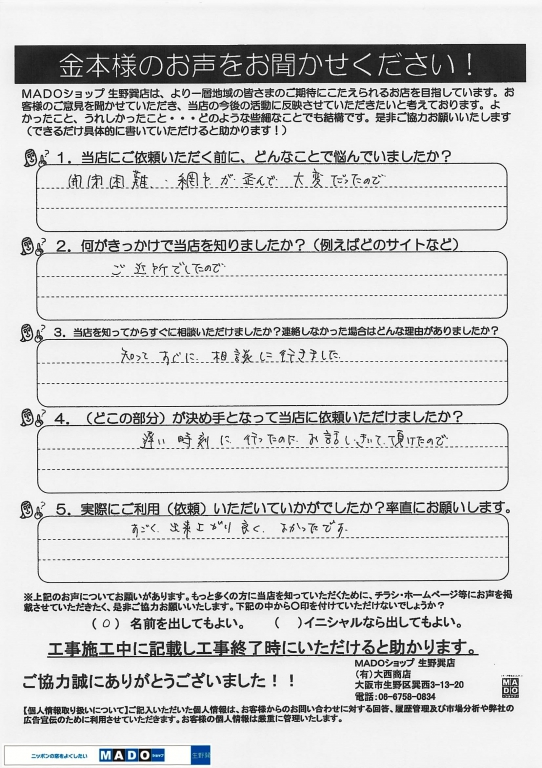 金本様のお声をお聞かせください！
MADOショップ 生野巽店は、より一層地域の皆さまのご期待にこたえられるお店を目指しています。お
客様のご意見を聞かせていただき、当店の今後の活動に反映させていただきたいと考えております。よ
かったこと、うれしかったこと・・・どのような些細なことでも結構です。是非ご協力お願いいたします
（できるだけ具体的に書いていただけると助かります！）
1．当店にご依頼いただく前に、どんなことで悩んでいましたか？
開閉困難・網戸が歪んで大変だったので
2．何がきっかけで当店を知りましたか？（例えばどのサイトなど）
ご近所でしたので
3．当店を知ってからすぐに相談いただけましたか？連絡しなかった場合はどんな理由がありましたか？
知ってすぐに相談に行きました
4．（どこの部分）が決め手となって当店に依頼いただけましたか？
遅い時刻に行ったのにお話しきいて頂けたので
5．実際にご利用（依頼）いただいていかがでしたか？率直にお願いします。
すごく出来上がり良くよかったです。
※上記のお声についてお願いがあります。もっと多くの方に当店を知っていただくために、チラシ・ホームページ等にお声を掲
載させていただきたく、是非ご協力お願いいたします。下記の中から〇印を付けていただけないでしょうか？
（○）名前を出してもよい。 （ ）イニシャルなら出してもよい。
工事施工中に記載し工事終了時にいただけると助かります。
ご協力誠にありがとうございました！！
MADOショップ 生野巽店
（有）大西商店
大阪市生野区巽西3-13-20
電話：06-6758-0834
MADO
【個人情報取り扱いについて】ご記入いただいた個人情報は、お客様からのお問い合わせに対する回答、履歴管理及び市場分析や弊社の
広告宣伝のために利用させていただきます。お客様の個人情報は厳重に管理いたします。
ニッポンの窓をよくしたい MADOショップ 生野巽